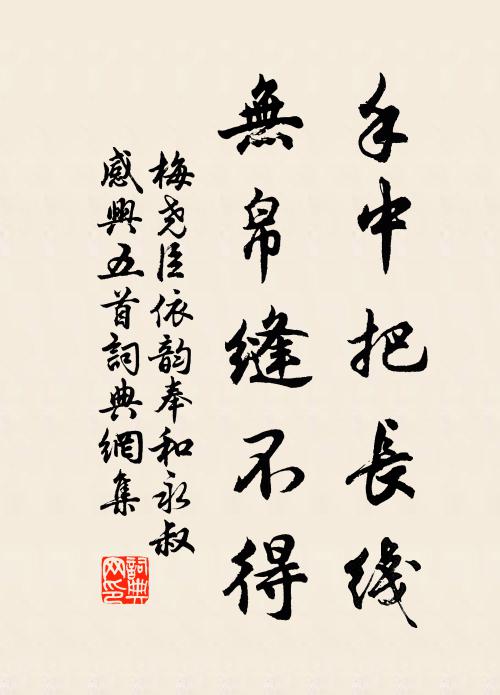 手中把長线
無帛缝不得
梅尧臣依韵奉和永叔
感興五首詞典網集
詞典
网印